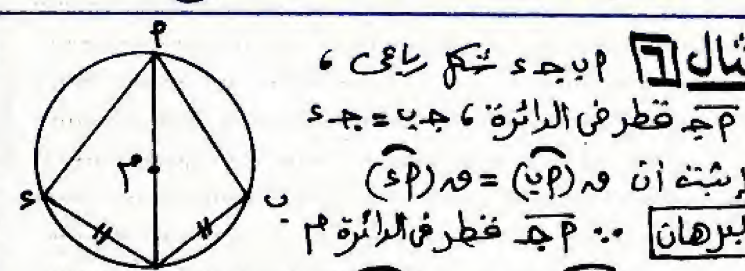 مثال ٦ أ ب جـ د شكل رباعى ،
أ جـ قطر فى الدائرة ، جـ ب = جـ د
إثبت أن ق (أ ب) = ق (أ د)
البرهان ∵ أ جـ قطر فى الدائرة م
أ
م
د
ب